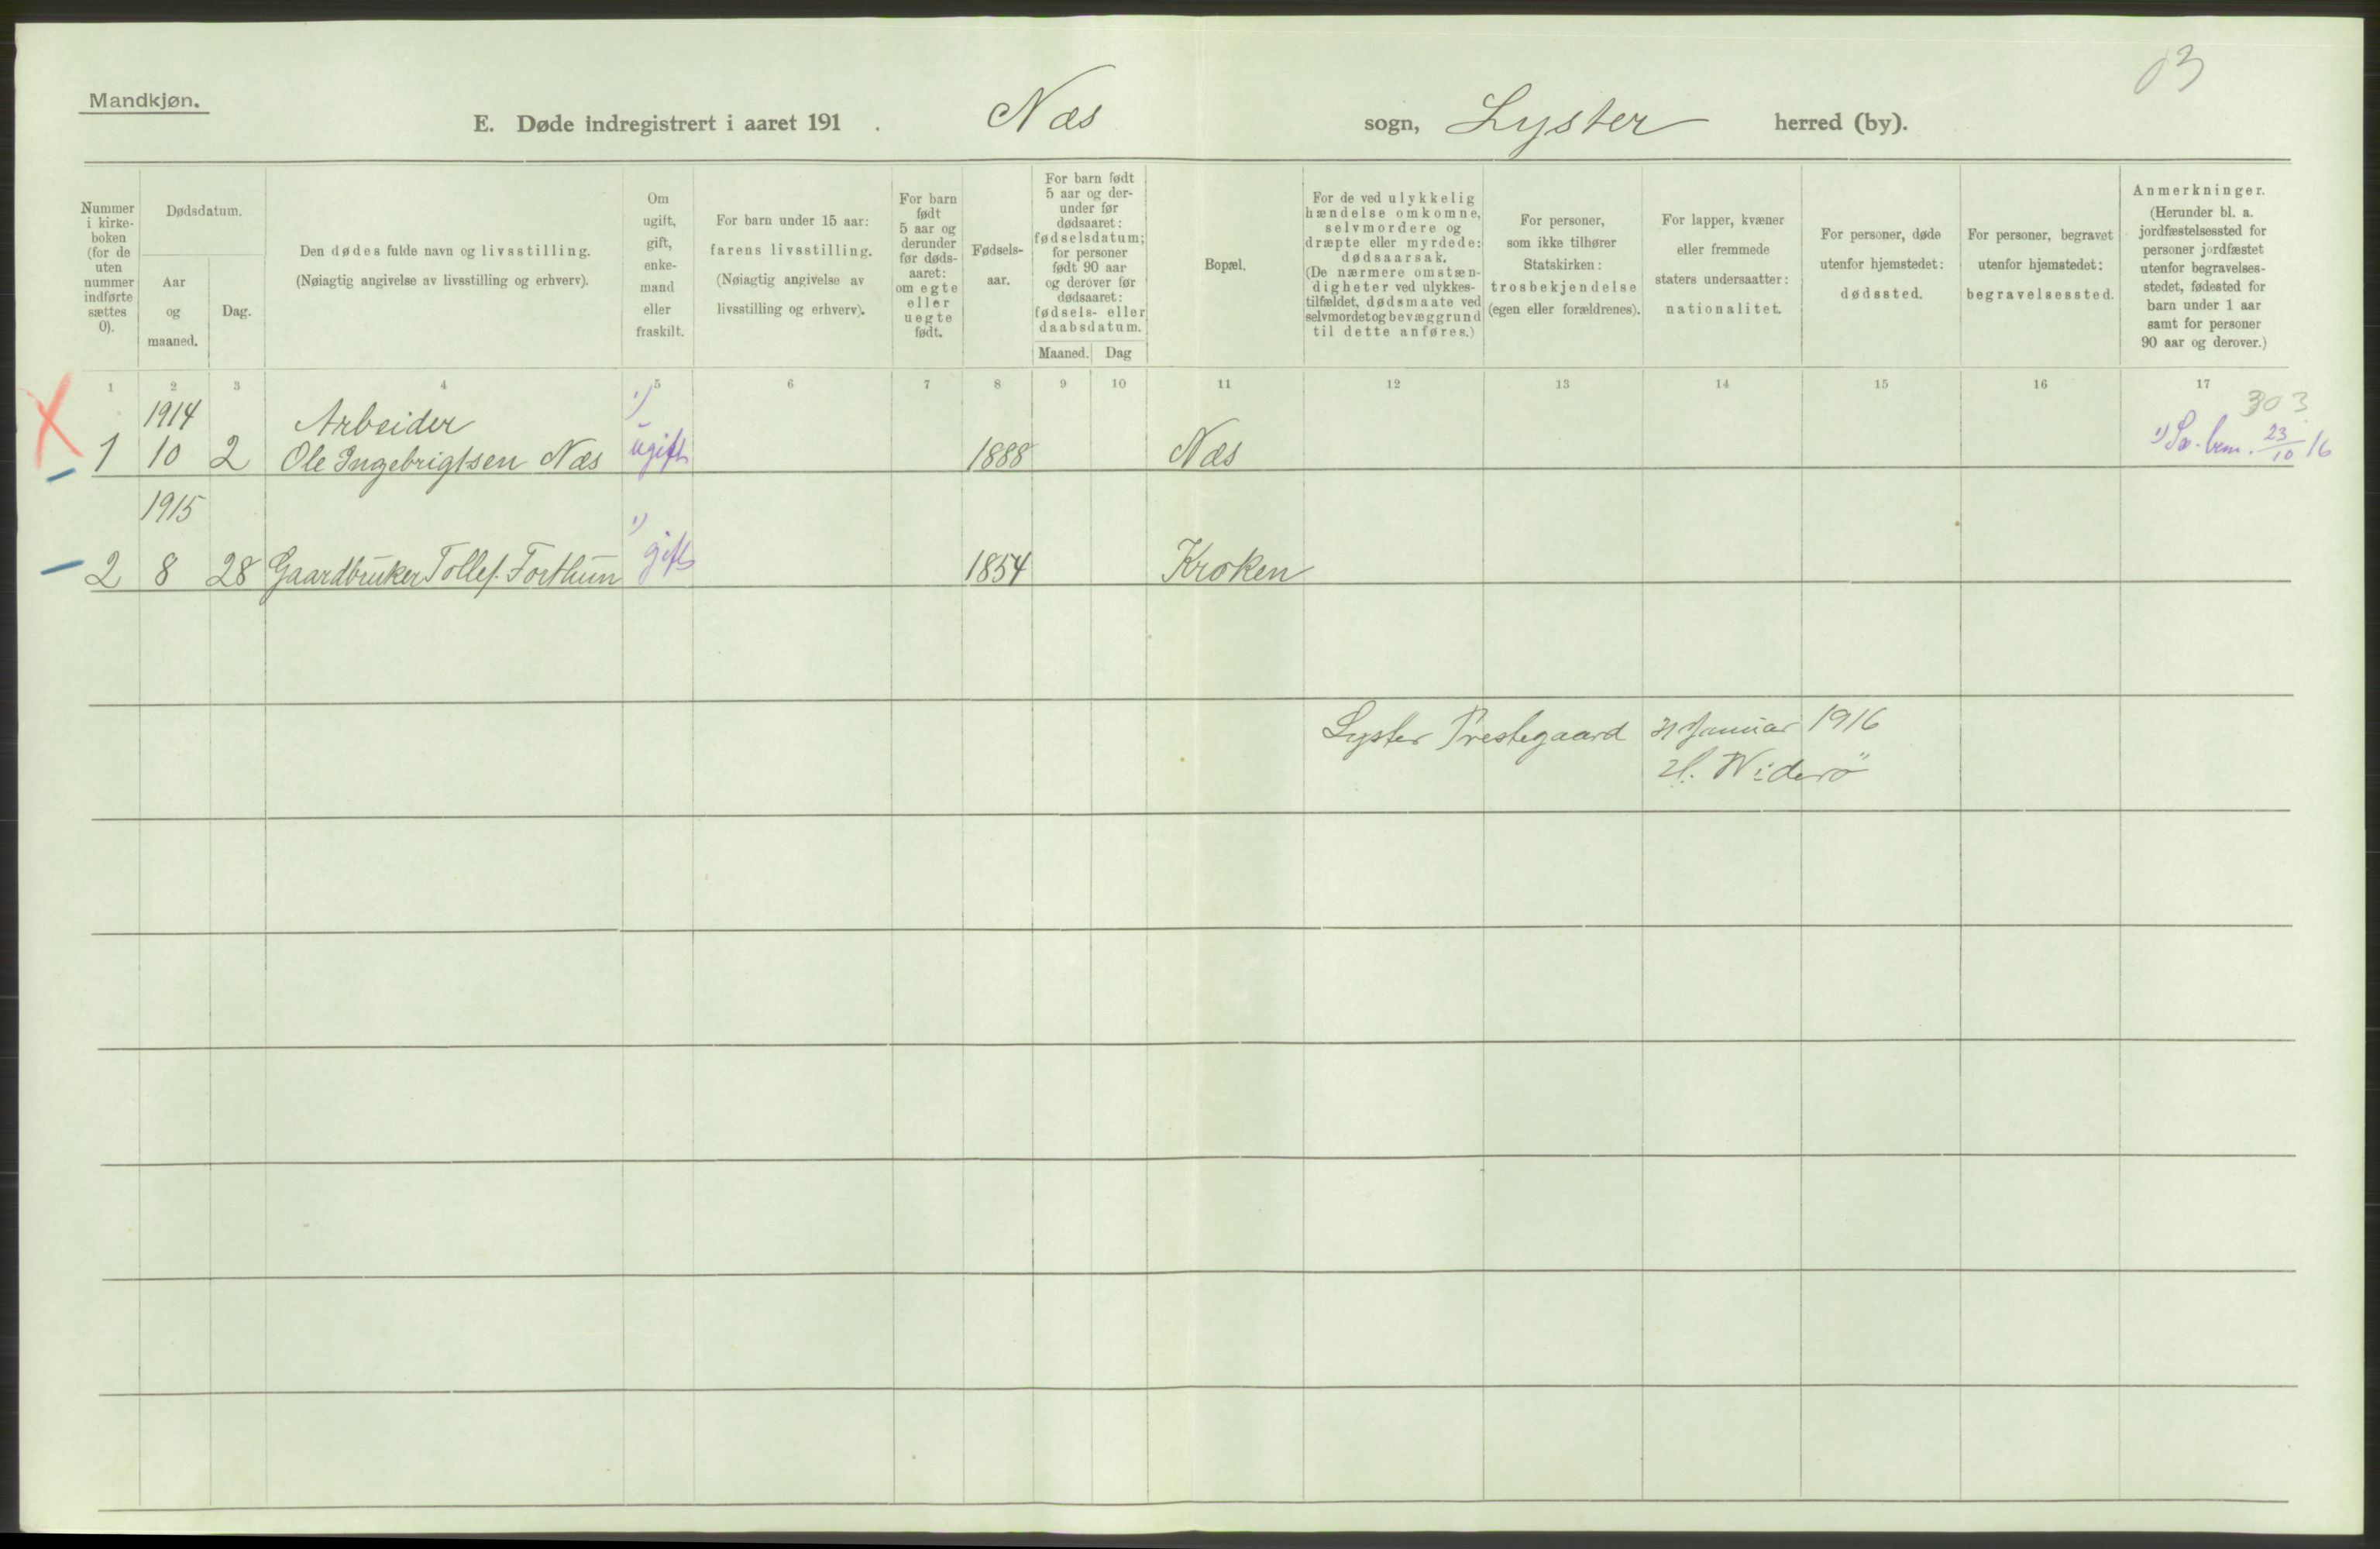 03
Mandkjøn.
E. Døde indregistrert i aaret 191 . Næs sogn, Lyster herred (by).
Nummer i kirke-boken (for de uten nummer indførte sættes 0).
Dødsdatum.
Aar og maaned.
Dag.
Den dødes fulde navn og livsstilling.
(Nøiagtig angivelse av livsstilling og erhverv).
Om ugift, gift, enke-mand eller fraskilt.
For barn under 15 aar:
farens livsstilling.
(Nøiagtig angivelse av
livsstilling og erhverv).
For barn født 5 aar og derunder før døds-aaret: om egte eller uegte født.
Fødsels-aar.
For barn født 5 aar og der-under før dødsaaret: fødselsdatum; for personer født 90 aar og derover før dødsaaret: fødsels- eller daabsdatum.
Maaned. Dag
Bopæl.
For de ved ulykkelig hændelse omkomne, selvmordere og dræpte eller myrdede: dødsaarsak. (De nærmere omstæn-digheter ved ulykkes-tilfældet, dødsmaate ved selvmordet og bevæggrund til dette anføres.)
For personer, som ikke tilhører Statskirken: trosbekjendelse (egen eller forældrenes).
For lapper, kvæner eller fremmede staters undersaatter: nationalitet.
For personer, døde utenfor hjemstedet: dødssted.
For personer, begravet utenfor hjemstedet: begravelsessted.
Anmerkninger.
(Herunder bl. a. jordfæstelsessted for personer jordfæstet utenfor begravelses-stedet, fødested for barn under 1 aar samt for personer 90 aar og derover.)
1 2 3 4 5 6 7 8 9 10 11 12 13 14 15 16 17
303
1914 Arbeider 1)
1 10 2 Ole Ingebrigtsen Næs ugift 1888 Næs 1) bem. 23/10 16
1915 1)
2 8 28 Gaardbruker Tollef. Forthun gift 1854 Kroken
Lyster Prestegaard 31 Januar 1916
H. Widerö